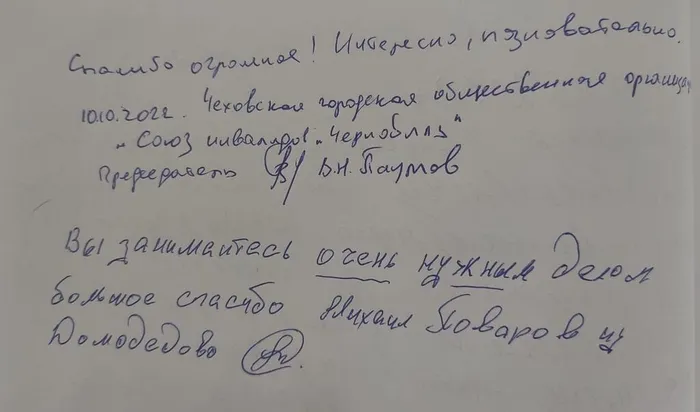 Спасибо огромное! Интересно, познавательно.
10.10.2022. Чеховская городская общественная организац
"Союз инвалидов "Чернобылец"
Председатель В.Н. Паумов
Вы занимаетесь очень нужным делом
большое спасибо Михаил Поваров из
Домодедово